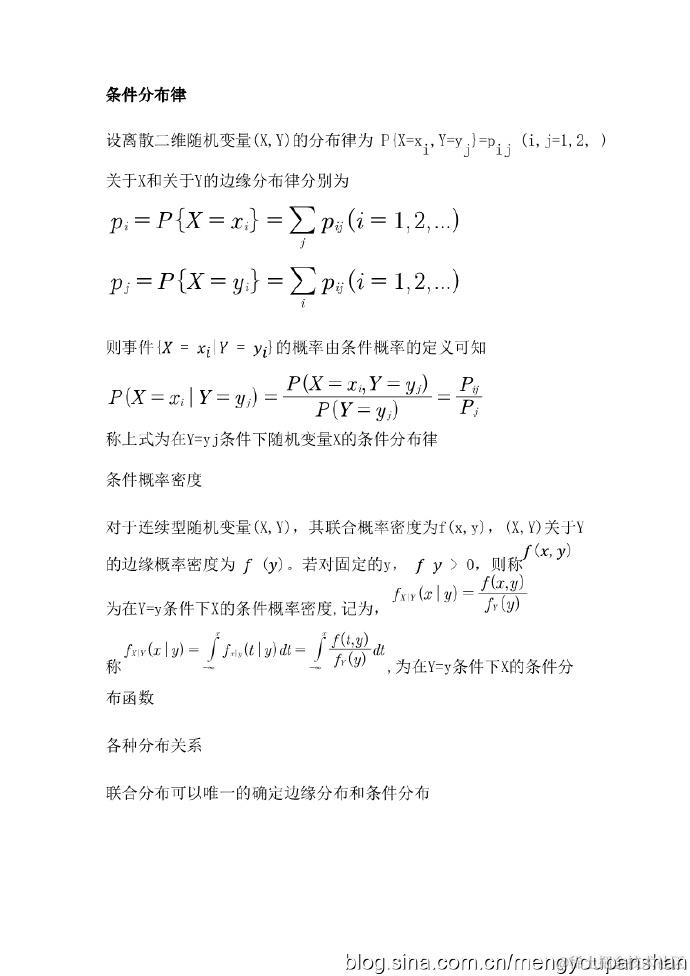 条件分布律
设离散二维随机变量(X,Y)的分布律为 P{X=x_i,Y=y_j}=p_ij (i,j=1,2, )
关于X和关于Y的边缘分布律分别为
p_i = P{X = x_i} = ∑_j p_ij (i = 1,2,...)
p_j = P{X = y_i} = ∑_i p_ij (i = 1,2,...)
则事件{X = x_i|Y = y_i}的概率由条件概率的定义可知
P(X = x_i | Y = y_j) = P(X = x_i, Y = y_j) / P(Y = y_j) = P_ij / P_j
称上式为在Y=yj条件下随机变量X的条件分布律
条件概率密度
对于连续型随机变量(X,Y), 其联合概率密度为f(x,y), (X,Y)关于Y
的边缘概率密度为 f (y)。若对固定的y, f y > 0, 则称 f(x,y)
为在Y=y条件下X的条件概率密度,记为, f_X|Y (x | y) = f(x,y) / f_Y(y)
称 f_X|Y (x | y) = ∫_-∞^x f_x|y (t | y) dt = ∫_-∞^x f(i,y) / f_Y(y) dt ,为在Y=y条件下X的条件分
布函数
各种分布关系
联合分布可以唯一的确定边缘分布和条件分布
blog.sina.com.cn/mengyoupanshan